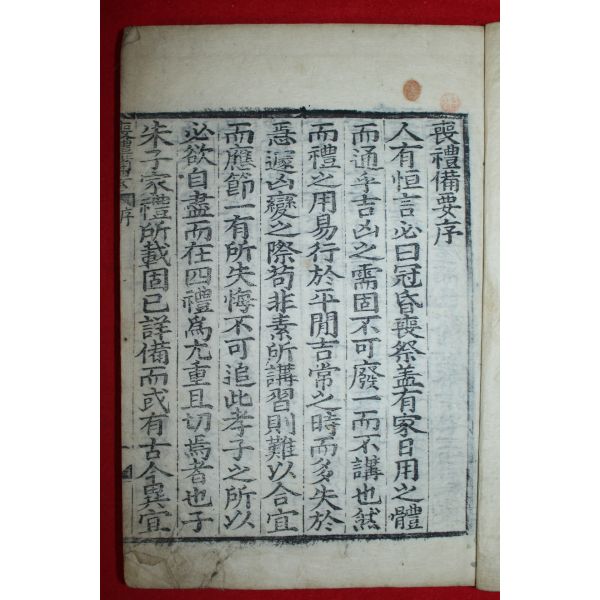 喪禮備要序
人有恒言必曰冠昏喪祭盖有家日用之體
而通乎吉凶之需固不可廢一而不講也然
而禮之用易行於平閒吉常之時而多失於
悤遽凶變之際苟非素所講習則難以合宜
而應節一有所失悔不可追此孝子之所以
必欲自盡而在四禮爲尤重且切焉者也子
朱子家禮所載固已詳備而或有古今異宜
喪禮備要 序